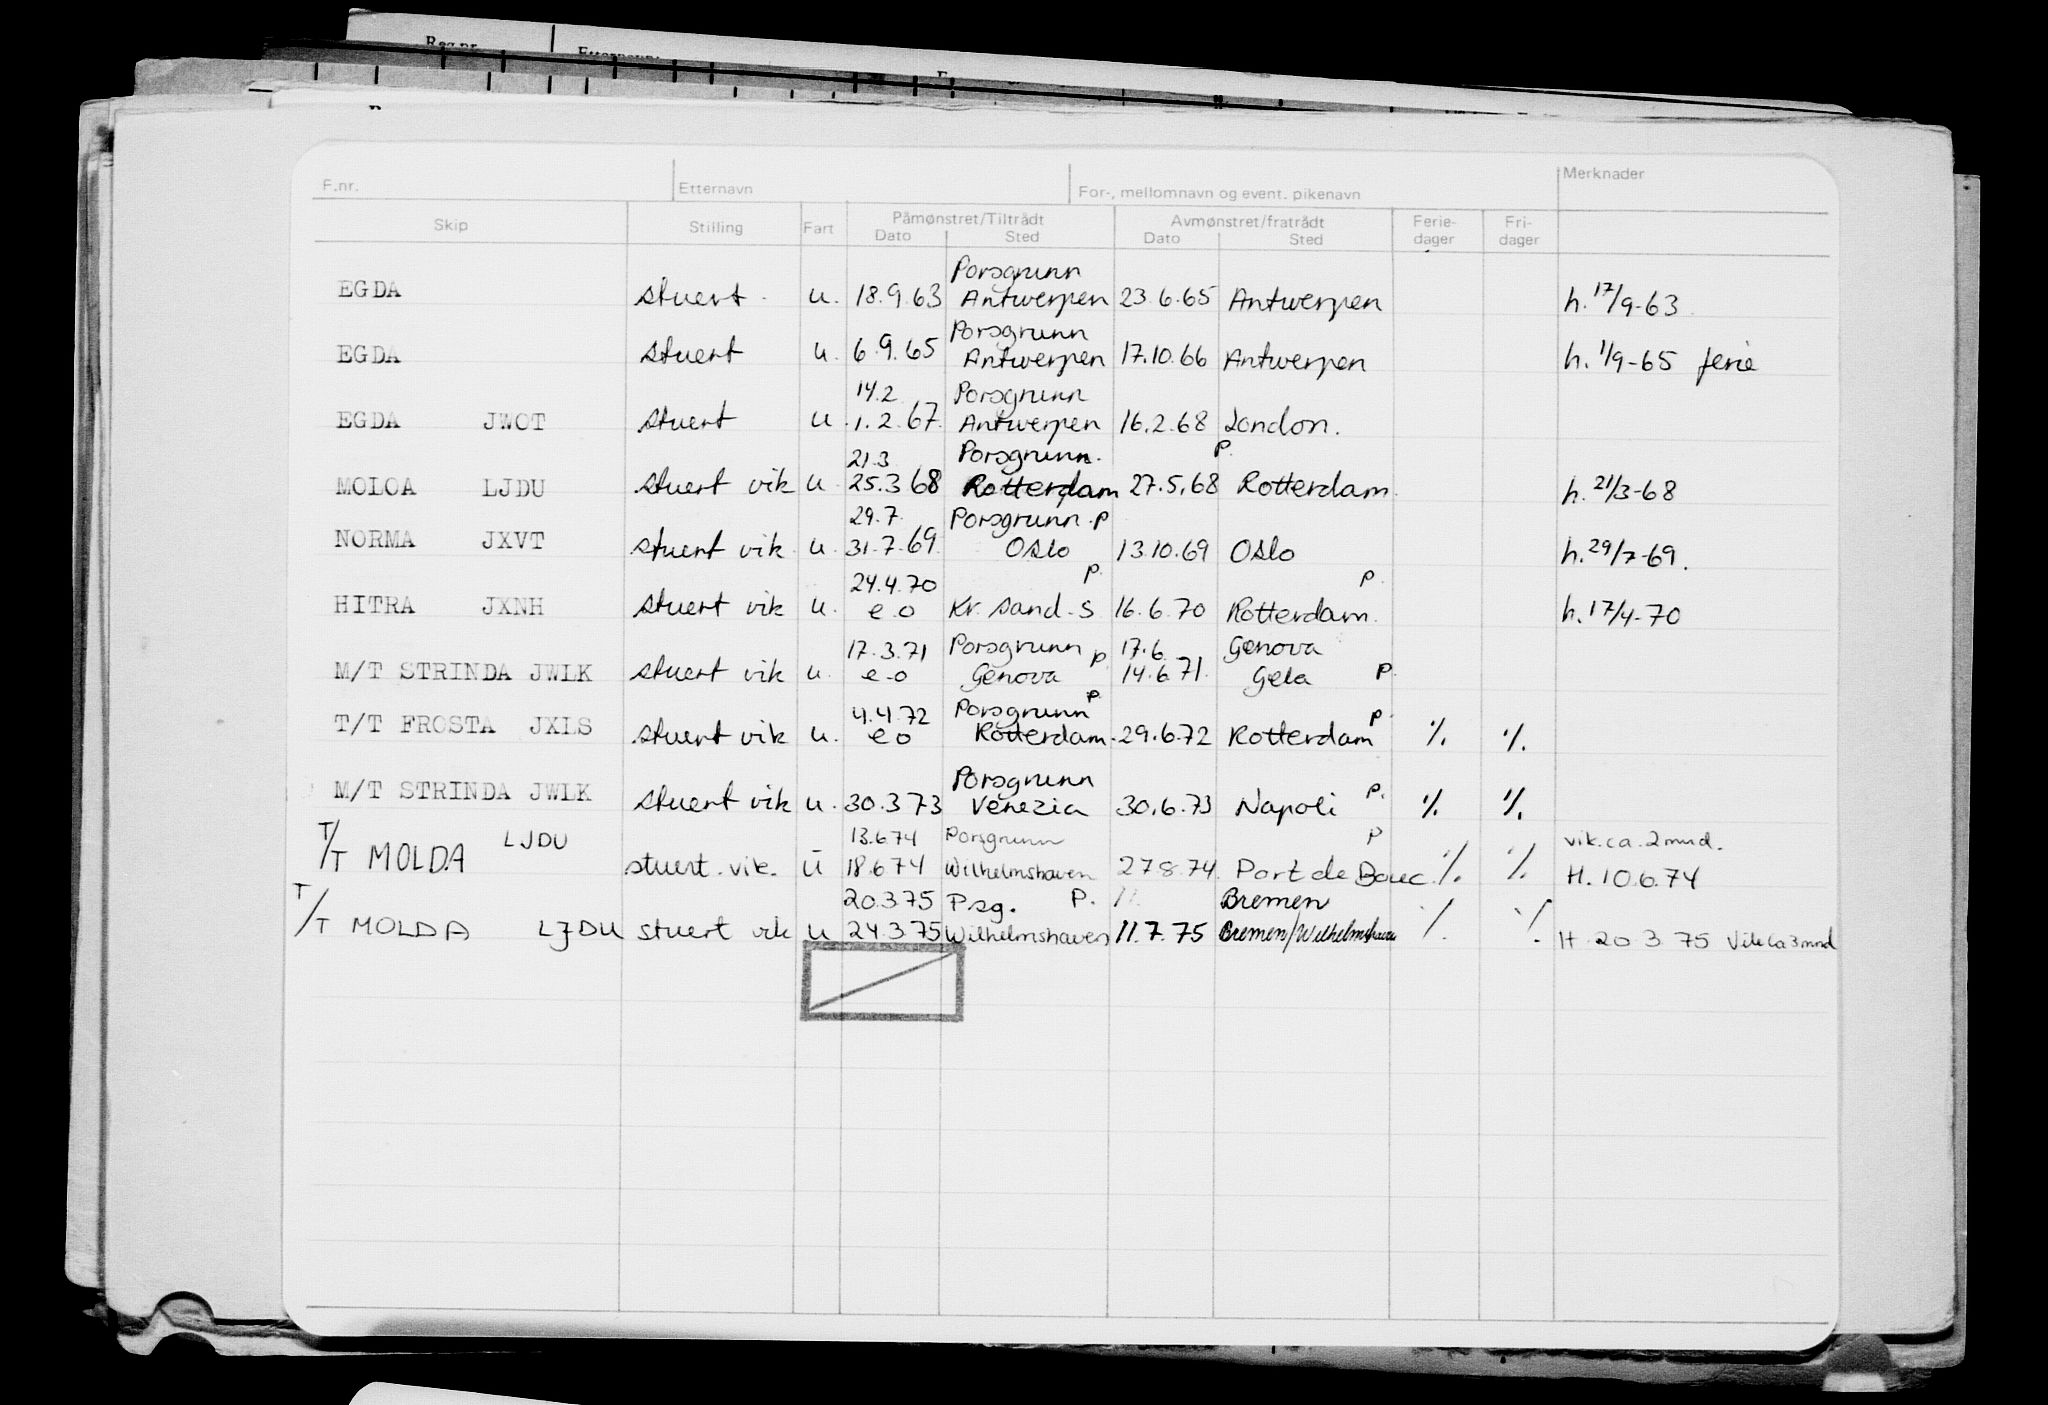 Reg.nr. Etternavn
F.nr. Etternavn For-, mellomnavn og event. pikenavn Merknader
Skip Stilling Fart Påmønstret/Tiltrådt Avmønstret/fratrådt Ferie- Fri-
Dato Sted Dato Sted dager dager
Porsgrunn
EGDA stuert. u. 18.9.63 Antwerpen 23.6.65 Antwerpen h. 17/9-63.
Porsgrunn
EGDA stuert u. 6.9.65 Antwerpen 17.10.66 Antwerpen h. 1/9-65 ferie
14.2 Porsgrunn
EGDA JWOT stuert u. 1.2.67. Antwerpen 16.2.68 London.
21.3 Porsgrunn. P.
MOLOA LJDU stuert vik u. 25.3 68 Rotterdam 27.5.68 Rotterdam. h. 21/3-68
29.7. Porsgrunn.P
NORMA JXVT stuert vik. u. 31.7.69. Oslo 13.10.69 Oslo h. 29/7-69.
24.4.70 P. P.
HITRA JXNH stuert vik u. e o Kr. sand. S 16.6.70 Rotterdam. h. 17/4-70
17.3.71 Porsgrunn P. 17.6. Genova
M/T STRINDA JWLK stuert vik u. e-o Genova 14.6.71. Gela P.
4.4.72 Porsgrunn P. P.
T/T FROSTA JXLS stuert vik u. e o Rotterdam. 29.6.72 Rotterdam ٪. ٪.
Porsgrunn
M/T STRINDA JWLK stuert vik u. 30.3 73 Venezia 30.6.73 Napoli P. ٪. ٪.
13.6 74 Porsgrunn P vik. ca. 2 mnd.
T/T MOLDA LJDU stuert. vik. u 18.6 74 Wilhelmshaven 27 8.74. Port de Bouc ٪. ٪. H. 10.6.74
20.3 75 Psg. P. 11. Bremen
T/T MOLDA LJDU stuert vik u 24.3 75 Wilhelmshaven 11.7.75 Bremen/Wilhelmshaven ٪. ٪. H 20 3 75 Vik Ca 3 mnd